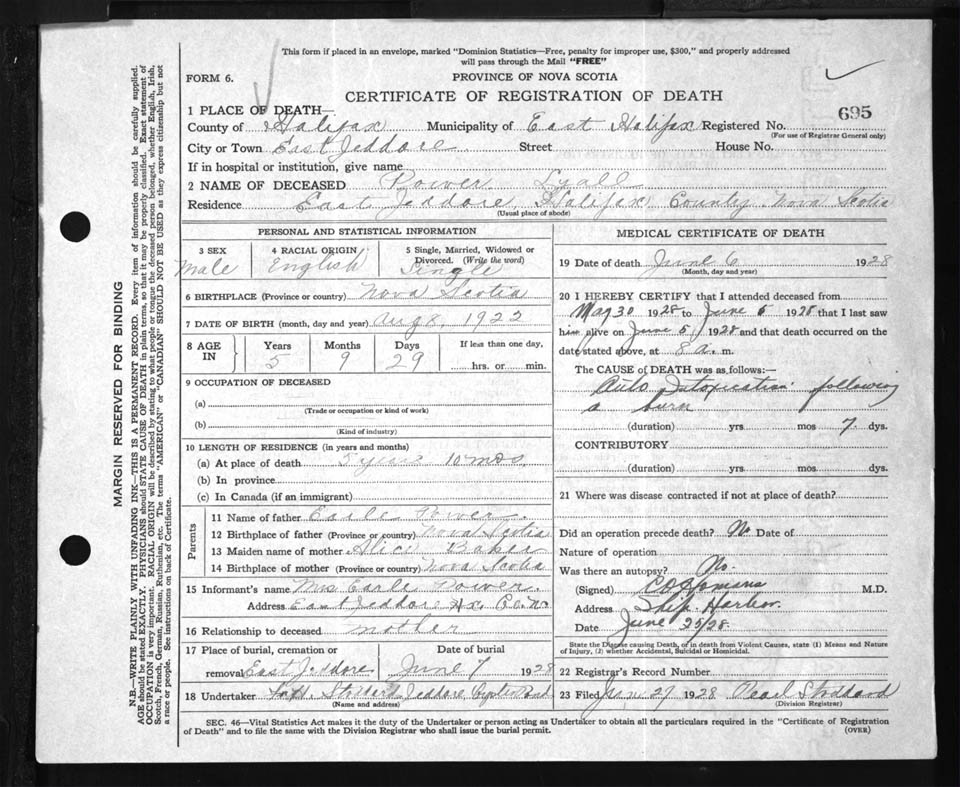 This form if placed in an envelope, marked "Dominion Statistics—Free, penalty for improper use, $300," and properly addressed
will pass through the Mail "FREE"
FORM 6.
PROVINCE OF NOVA SCOTIA
CERTIFICATE OF REGISTRATION OF DEATH
695
1 PLACE OF DEATH—
County of Halifax Municipality of East Halifax Registered No.
(For use of Registrar General only)
City or Town East Jeddore Street House No.
If in hospital or institution, give name
2 NAME OF DECEASED Power Lyall
Residence East Jeddore Halifax County Nova Scotia
(Usual place of abode)
PERSONAL AND STATISTICAL INFORMATION
3 SEX
Male
4 RACIAL ORIGIN
English
5 Single, Married, Widowed or
Divorced. (Write the word)
Single
6 BIRTHPLACE (Province or country) Nova Scotia
7 DATE OF BIRTH (month, day and year) Aug 8, 1922
8 AGE IN
Years Months Days If less than one day,
5 9 29 hrs. or min.
9 OCCUPATION OF DECEASED
(a)
(Trade or occupation or kind of work)
(b)
(Kind of industry)
10 LENGTH OF RESIDENCE (in years and months)
(a) At place of death 5 years 10 mos.
(b) In province
(c) In Canada (if an immigrant)
Parents
11 Name of father Earle Power
12 Birthplace of father (Province or country) Nova Scotia
13 Maiden name of mother Alice Baker
14 Birthplace of mother (Province or country) Nova Scotia
15 Informant's name Mrs Earle Power
Address East Jeddore Hx. Co. N.S.
16 Relationship to deceased mother
17 Place of burial, cremation or Date of burial
removal East Jeddore June 7 1928
18 Undertaker Stoddard Jeddore
(Name and address)
MEDICAL CERTIFICATE OF DEATH
19 Date of death June 6 1928
(Month, day and year)
20 I HEREBY CERTIFY that I attended deceased from
May 30 1928 to June 6 1928 that I last saw
him alive on June 5 1928 and that death occurred on
date stated above, at 8 a. m.
The CAUSE OF DEATH was as follows:—
Auto Intoxication following
a burn
(duration) yrs mos 7 dys.
CONTRIBUTORY
(duration) yrs. mos dys.
21 Where was disease contracted if not at place of death?
Did an operation precede death? No Date of
Nature of operation
Was there an autopsy? No.
(Signed) M.D.
Address Ship Harbor
Date June 25/28.
State the Disease causing Death, or in death from Violent Causes, state (1) Means and Nature
of Injury, (2) whether Accidental, Suicidal or Homicidal.
22 Registrar's Record Number
23 Filed June 27 1928 Pearl Stoddard
(Division Registrar)
SEC. 46—Vital Statistics Act makes it the duty of the Undertaker or person acting as Undertaker to obtain all the particulars required in the "Certificate of Registration
of Death" and to file the same with the Division Registrar who shall issue the burial permit.
(OVER)
MARGIN RESERVED FOR BINDING
N.B.—WRITE PLAINLY WITH UNFADING INK—THIS IS A PERMANENT RECORD. Every item of information should be carefully supplied.
AGE should be stated EXACTLY. PHYSICIANS should STATE CAUSE OF DEATH in plain terms, so that it may be properly classified. Exact statement of
OCCUPATION is very important. RACIAL ORIGIN will be described by stating to what people or tongue the deceased person belonged, whether English, Irish,
Scotch, French, German, Russian, Ruthenian, etc. The terms "AMERICAN" or "CANADIAN" SHOULD NOT BE USED as they express citizenship but not
a race or people. See instructions on back of Certificate.